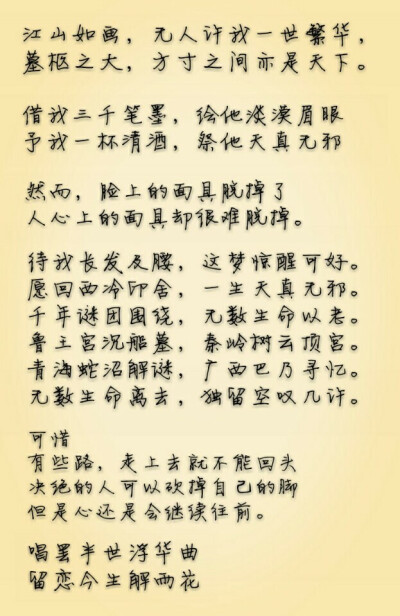 江山如画，无人许我一世繁华，
墓柩之大，方寸之间亦是天下。
借我三千笔墨，绘他淡漠眉眼
予我一杯清酒，祭他天真无邪
然而，脸上的面具脱掉了
人心上的面具却很难脱掉。
待我长发及腰，这梦惊醒可好。
愿回西冷印舍，一生天真无邪。
千年谜团围绕，无数生命以老。
鲁王宫沉船墓，秦岭树云顶宫。
青海蛇沼解谜，广西巴乃寻忆。
无数生命离去，独留空叹几许。
可惜
有些路，走上去就不能回头
决绝的人可以砍掉自己的脚
但是心还是会继续往前。
唱罢半世浮华曲
留恋今生解雨花